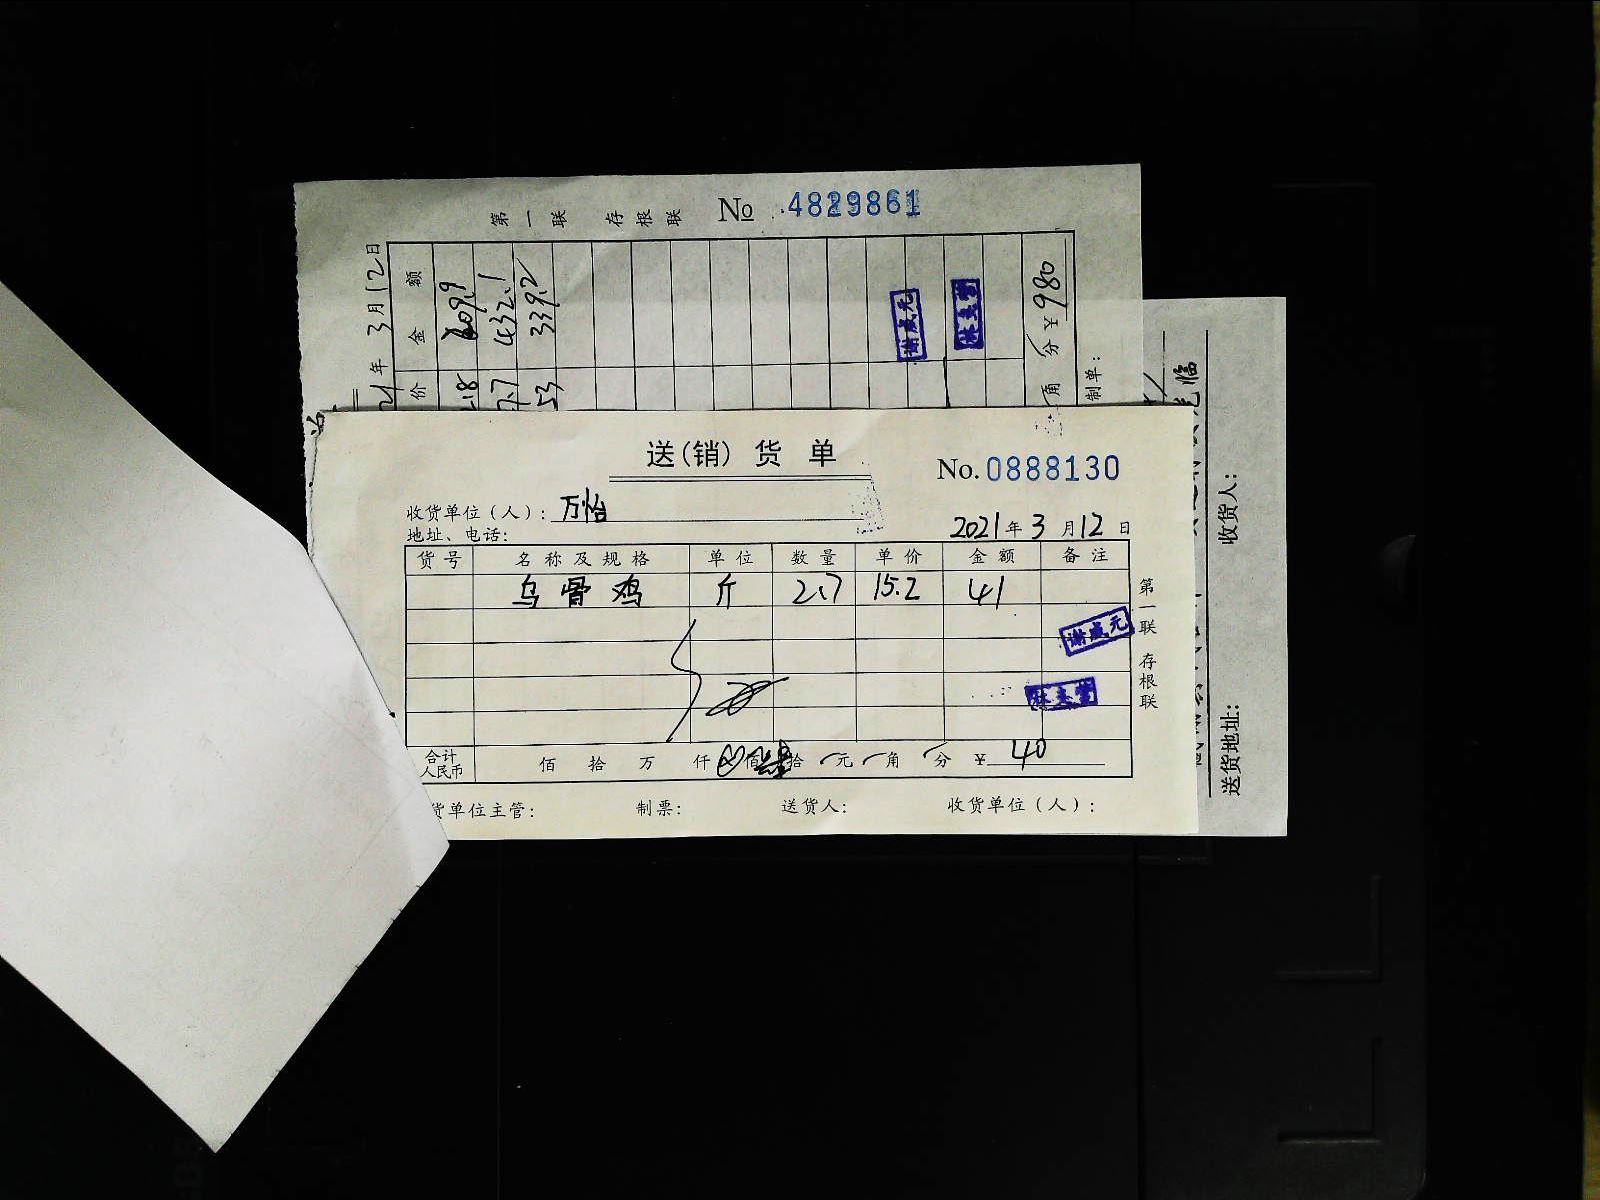 第一联 存根联 No 4829861
年3月12日
价 金额
209.9
432.1
53 339.2
谢咸元
角 分 ¥980
制单:
送(销)货单
No. 0888130
收货单位(人): 万怡
地址、电话:
2021年3月12日
货号 名称及规格 单位 数量 单价 金额 备注
乌骨鸡 斤 2.7 15.2 41
第一联 存根联
谢咸元
合计人民币 佰 拾 万 仟 佰 拾 元 角 分 ¥40
货单位主管: 制票: 送货人: 收货单位(人):
收货人:
送货地址: